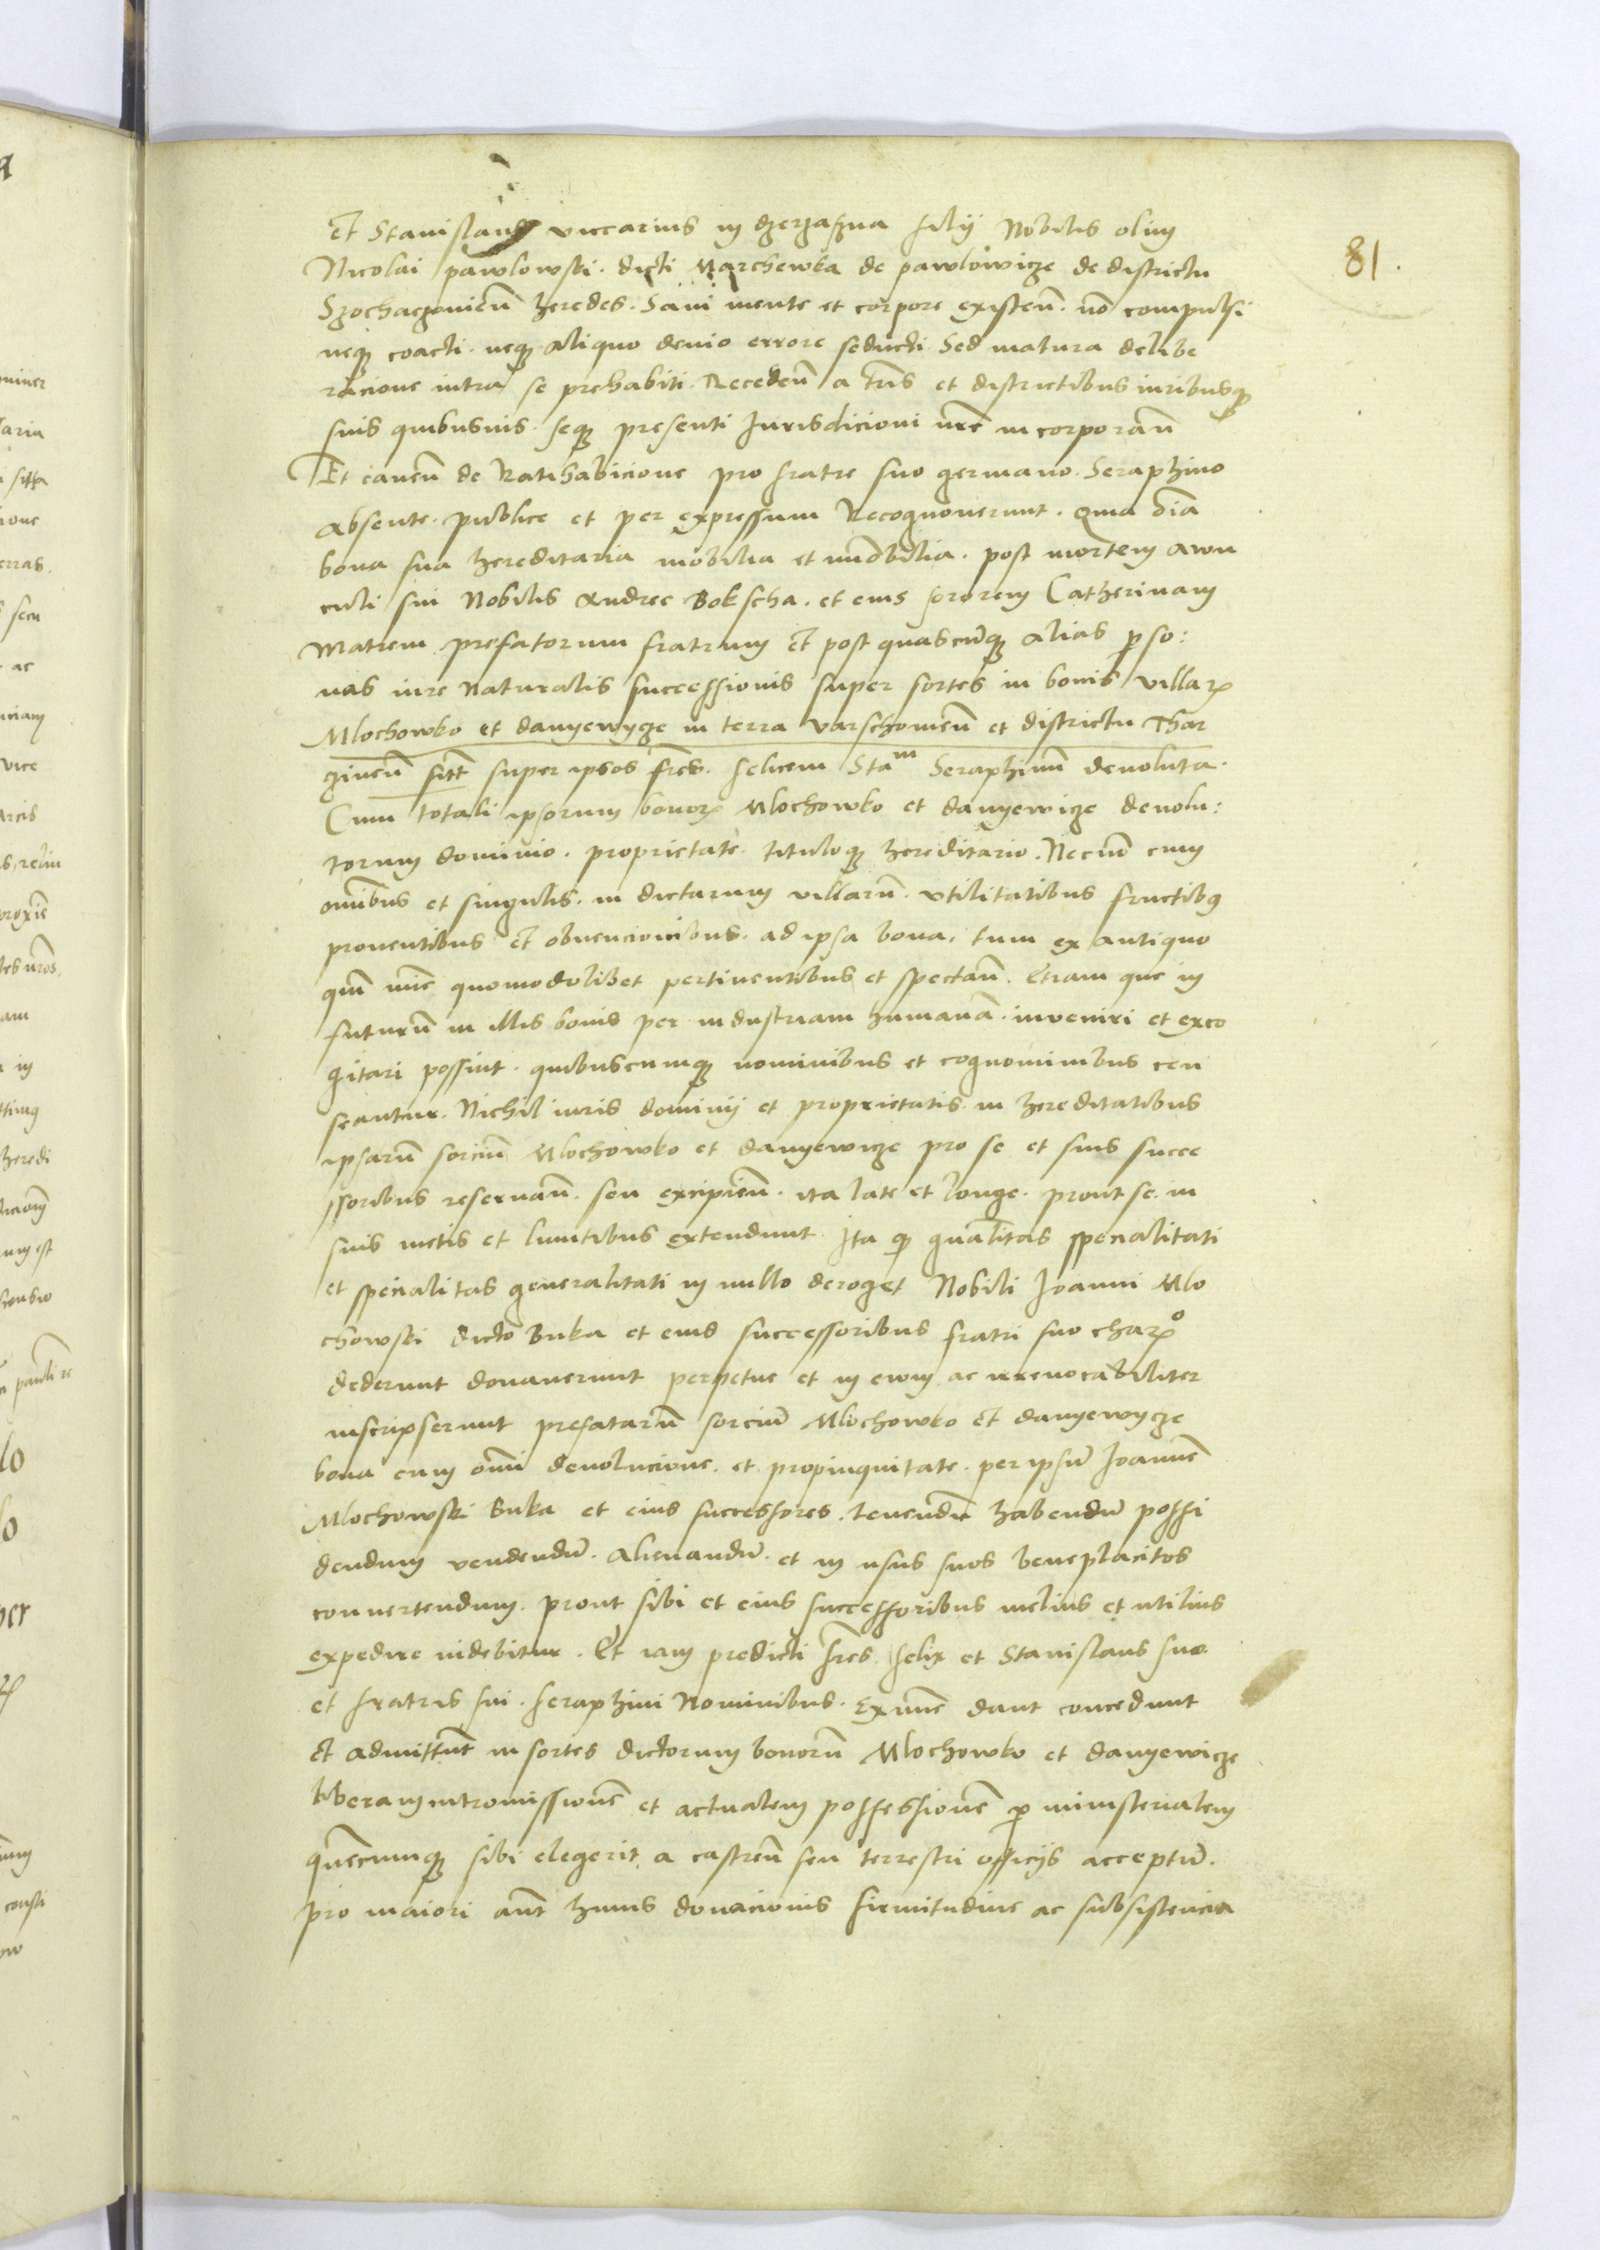 81
Et Stanislaus viccarius in dzerzaszna filij Nobilis olim
Nicolai pawlowski. dicti Marchewka de pawlowicze de districtu
Szochaczouien̄ heredes. Sani mente et corpore existen̄. nō compulsi
neqꝫ coacti. neqꝫ aliquo denio errore seducti Sed matura delibe
racione intra se prehabiti. Receden̄ a tr̄is et districtibus iuribusqꝫ
suis quibusuis. seqꝫ presenti Jurisdicioni nr̄e incorporan̄
Et cauen̄ de Ratihabicione pro fratre suo germano. Seraphino
absente. publice et per expressum Recognouerunt. Quia oīa
bona sua hereditaria mobilia et immōbilia. post mortem awn
culi sui Nobilis Andree Bokscha. et eius sororem Catherinam
Matrem prefatorum fratrum Et post quascūqꝫ alias ꝑso:
nas iure Naturalis successionis super sortes in bonis villaꝝ
Mlochowko et danyewycze in terra varschouien̄ et districtu Thar
cinen̄ sitt̄ super ipsos fr̄es. felicem Staᵐ Seraphinū deuoluta.
Cum totali ipsorum bonoꝝ Mlochowko et danyewicze deuolu:
torum dominio. proprietate. tituloqꝫ hereditario. Necnō cum
om̄ibus et singulis. in dictarum villarū. vtilitatibus fructibꝰ
prouentibus Et obuencionibus. ad ipsa bona. tum ex antiquo
qm̄ nūc quomodolibet pertinentibus et spectan̄. Etiam que in
futurū in illis bonis per industriam humanā. inveniri et exco
gitari possint. quibuscumqꝫ nominibus et cognominibus cen
seantur. Nichil iuris dominij et proprietatis. in hereditatibus
ipsarū sorciū Mlochowko et danyewicze pro se et suis succe
ssoribus reseruan̄. seu excipien̄. ita late et longe. prout se in
suis metis et limitibus extendunt. Ita qꝫ gn̄alitas specialitati
et specialitas generalitati in nullo deroget Nobili Joanni Mlo
chowski dicto Buka et eius successoribus fratri suo chaꝝº
dederunt donauerunt perpetue et in ewm ac irreuocabiliter
inscripserunt prefatarū sorciū Mlochowko Et danyewycze
bona cum om̄i deuolucione. et propinquitate. per ipsū Joannē
Mlochowski Buka et eius successores. tenendū habendū possi
dendum vendendū. alienandū. et in usus suos beneplacitos
conuertendum. prout sibi et eius successoribus melius et utilius
expedire videbitur. Et iam predicti fr̄es. felix et Stanislaus suo
et fratris sui. seraphini Nominibus. Exnūc dant concedunt
Et admittūt in sortes dictorum bonorū Mlochowko et danyewicze
liberam intromissionē et actualem possessionē ꝑ ministerialem
quēcumqꝫ sibi elegerit a castren̄ seu terrestri officijs acceptū.
pro maiori aūt huius donacionis firmitudine ac subsistencia